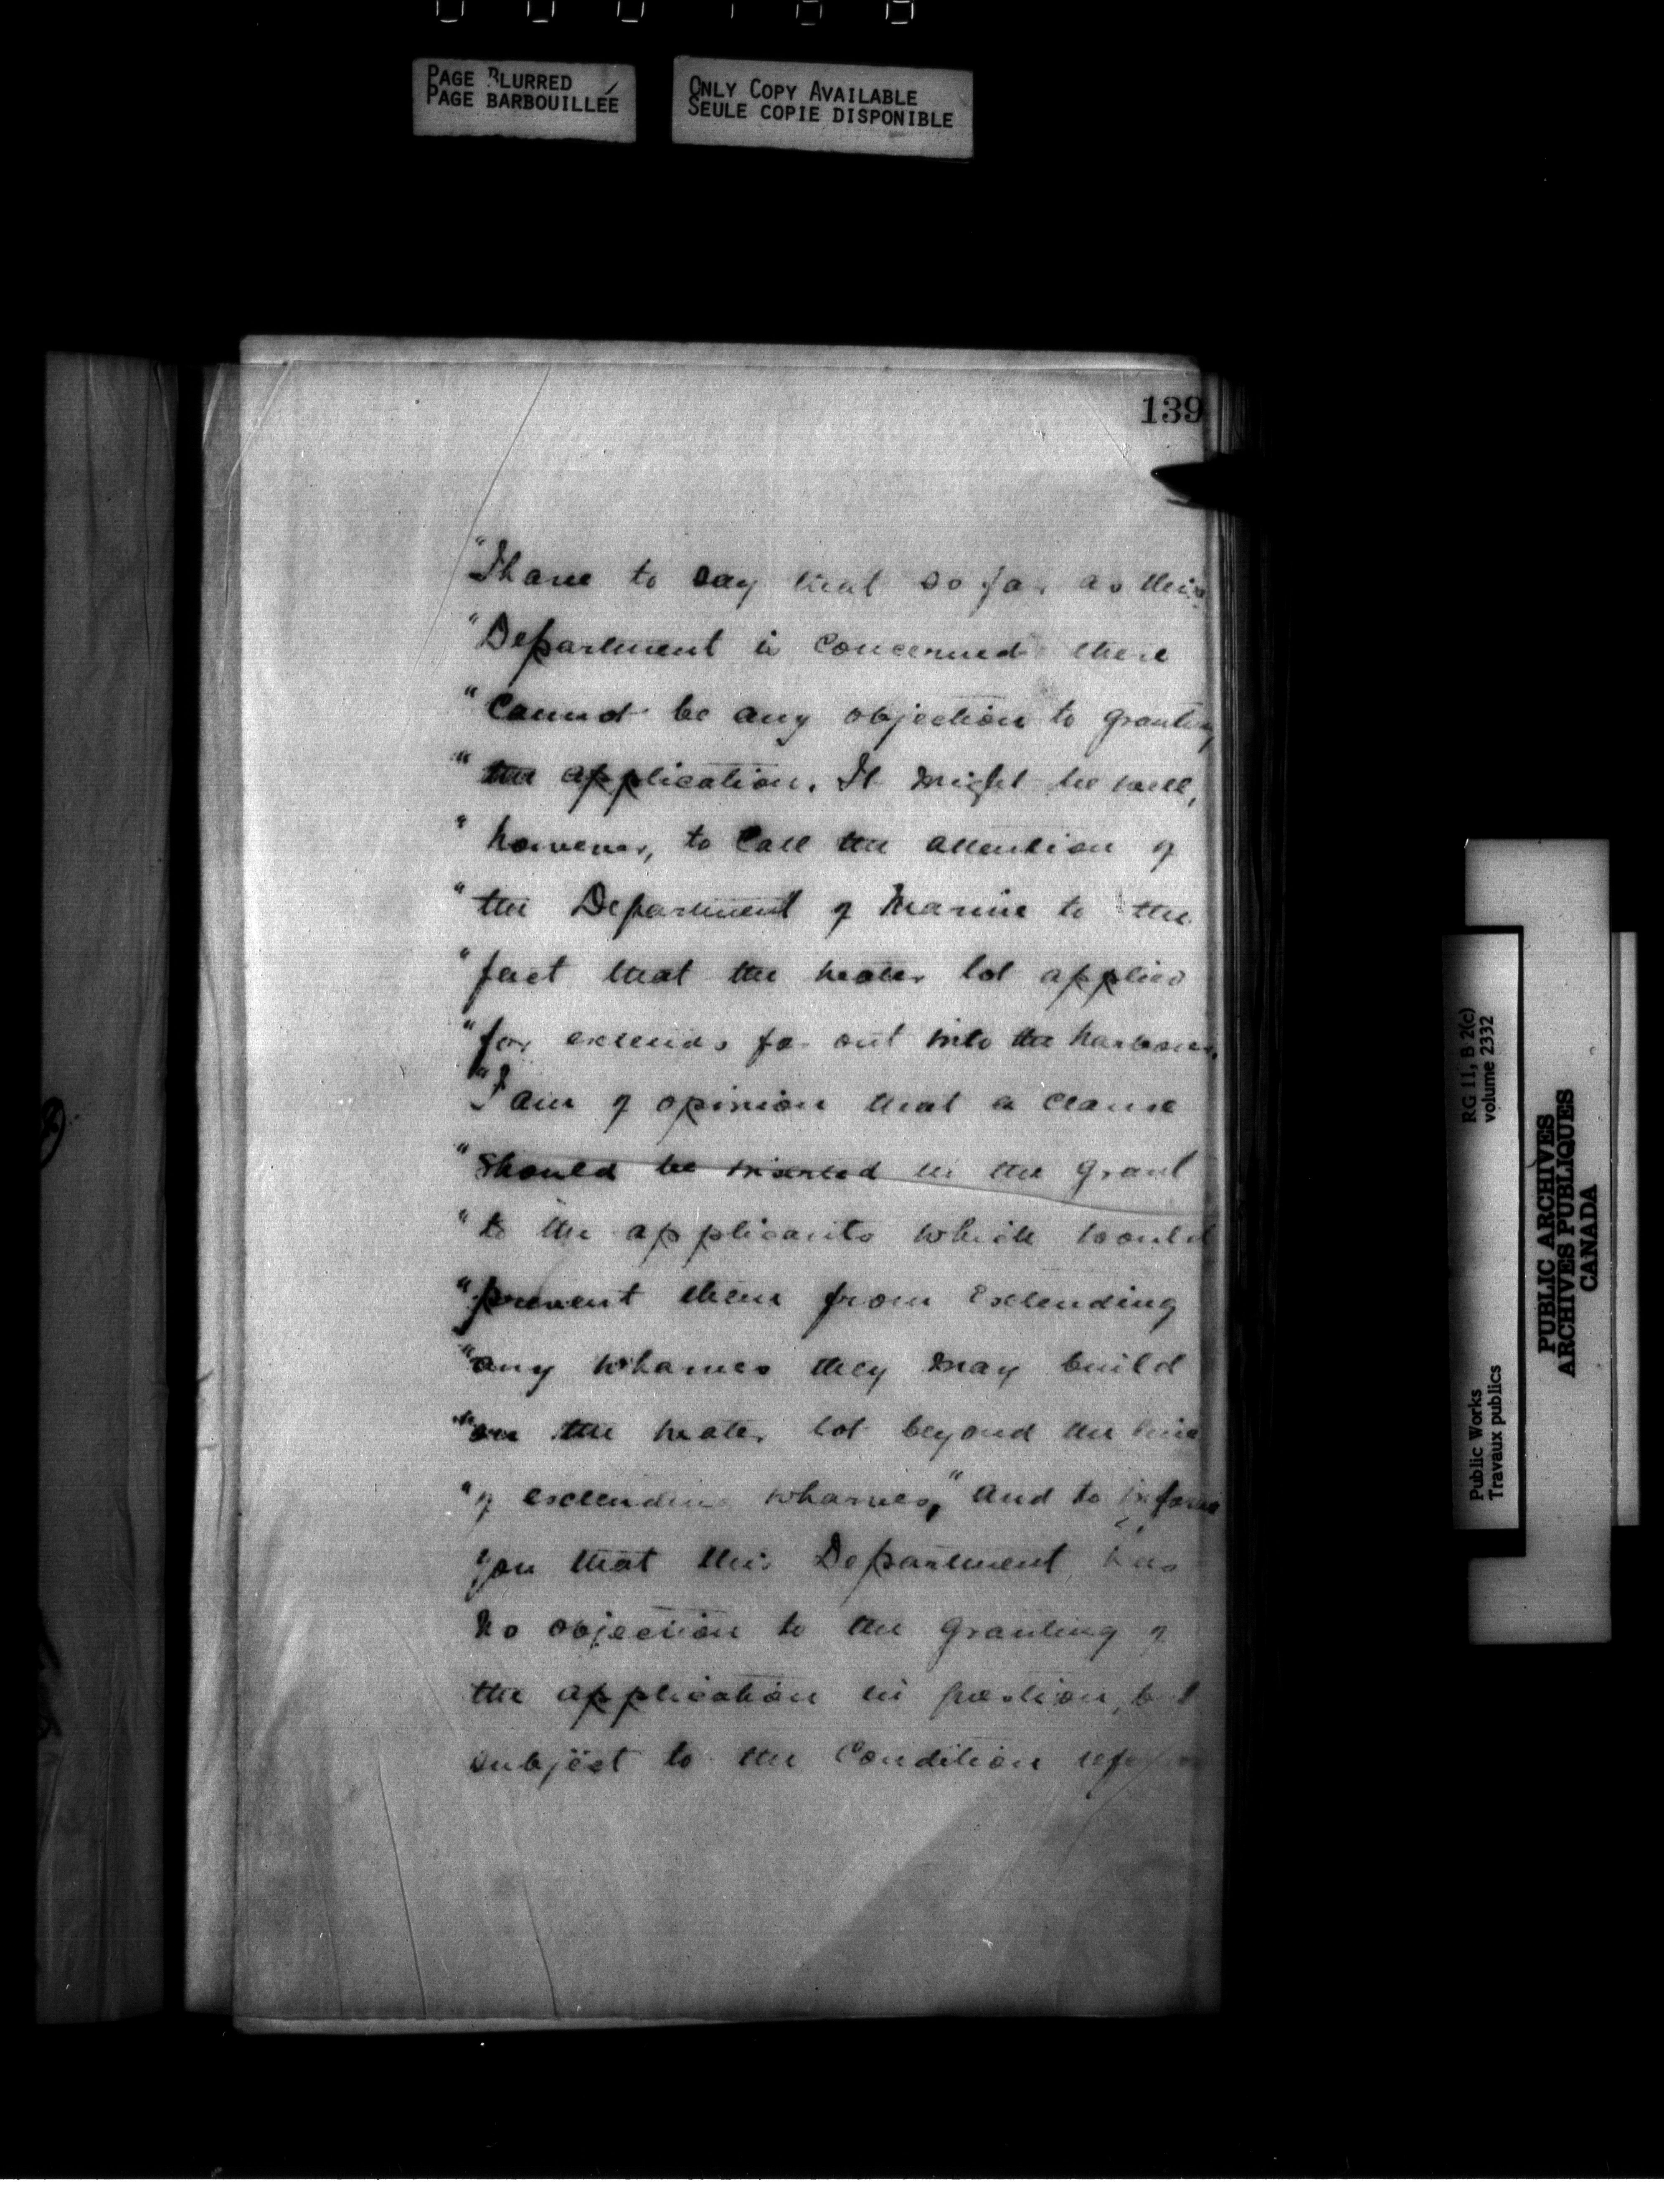 PAGE BLURRED
PAGE BARBOUILLÉE
ONLY COPY AVAILABLE
SEULE COPIE DISPONIBLE
139
"I have to say that so far as this
"Department is concerned there
"cannot be any objection to granting
"the application. It might be well,
"however, to call the attention of
"the Department of Marine to the
"fact that the water lot applied
"for extends far out into the harbour.
"I am of opinion that a clause
"should be inserted in the grant
"to the applicants which would
"prevent them from extending
"any wharves they may build
"on the water lot beyond the line
"of extending wharves," and to inform
you that this Department has
no objection to the granting of
the application in question, but
subject to the condition
RG 11, B 2(c)
volume 2332
Public Works
Travaux publics
PUBLIC ARCHIVES
ARCHIVES PUBLIQUES
CANADA